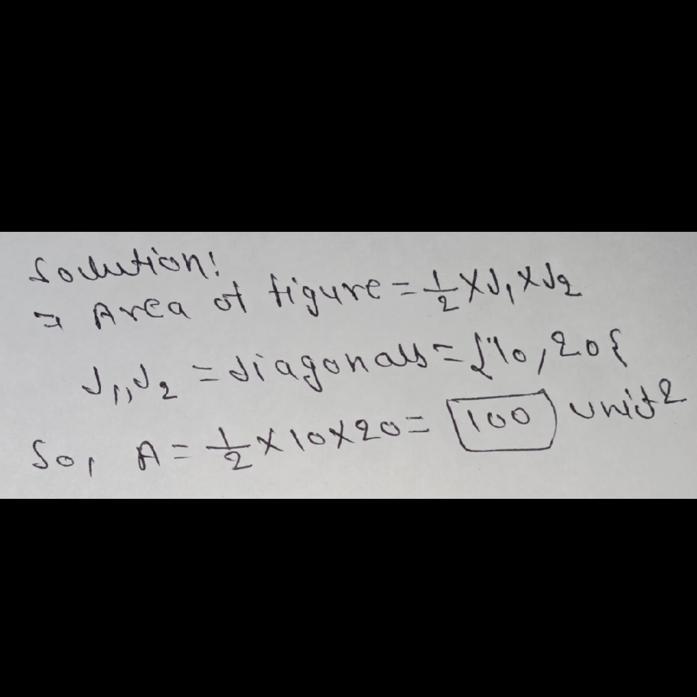 Solution:
⇒ Area of figure = 1/2 × d₁ × d₂
d₁, d₂ = diagonals = {10, 20}
So, A = 1/2 × 10 × 20 = 100 unit²